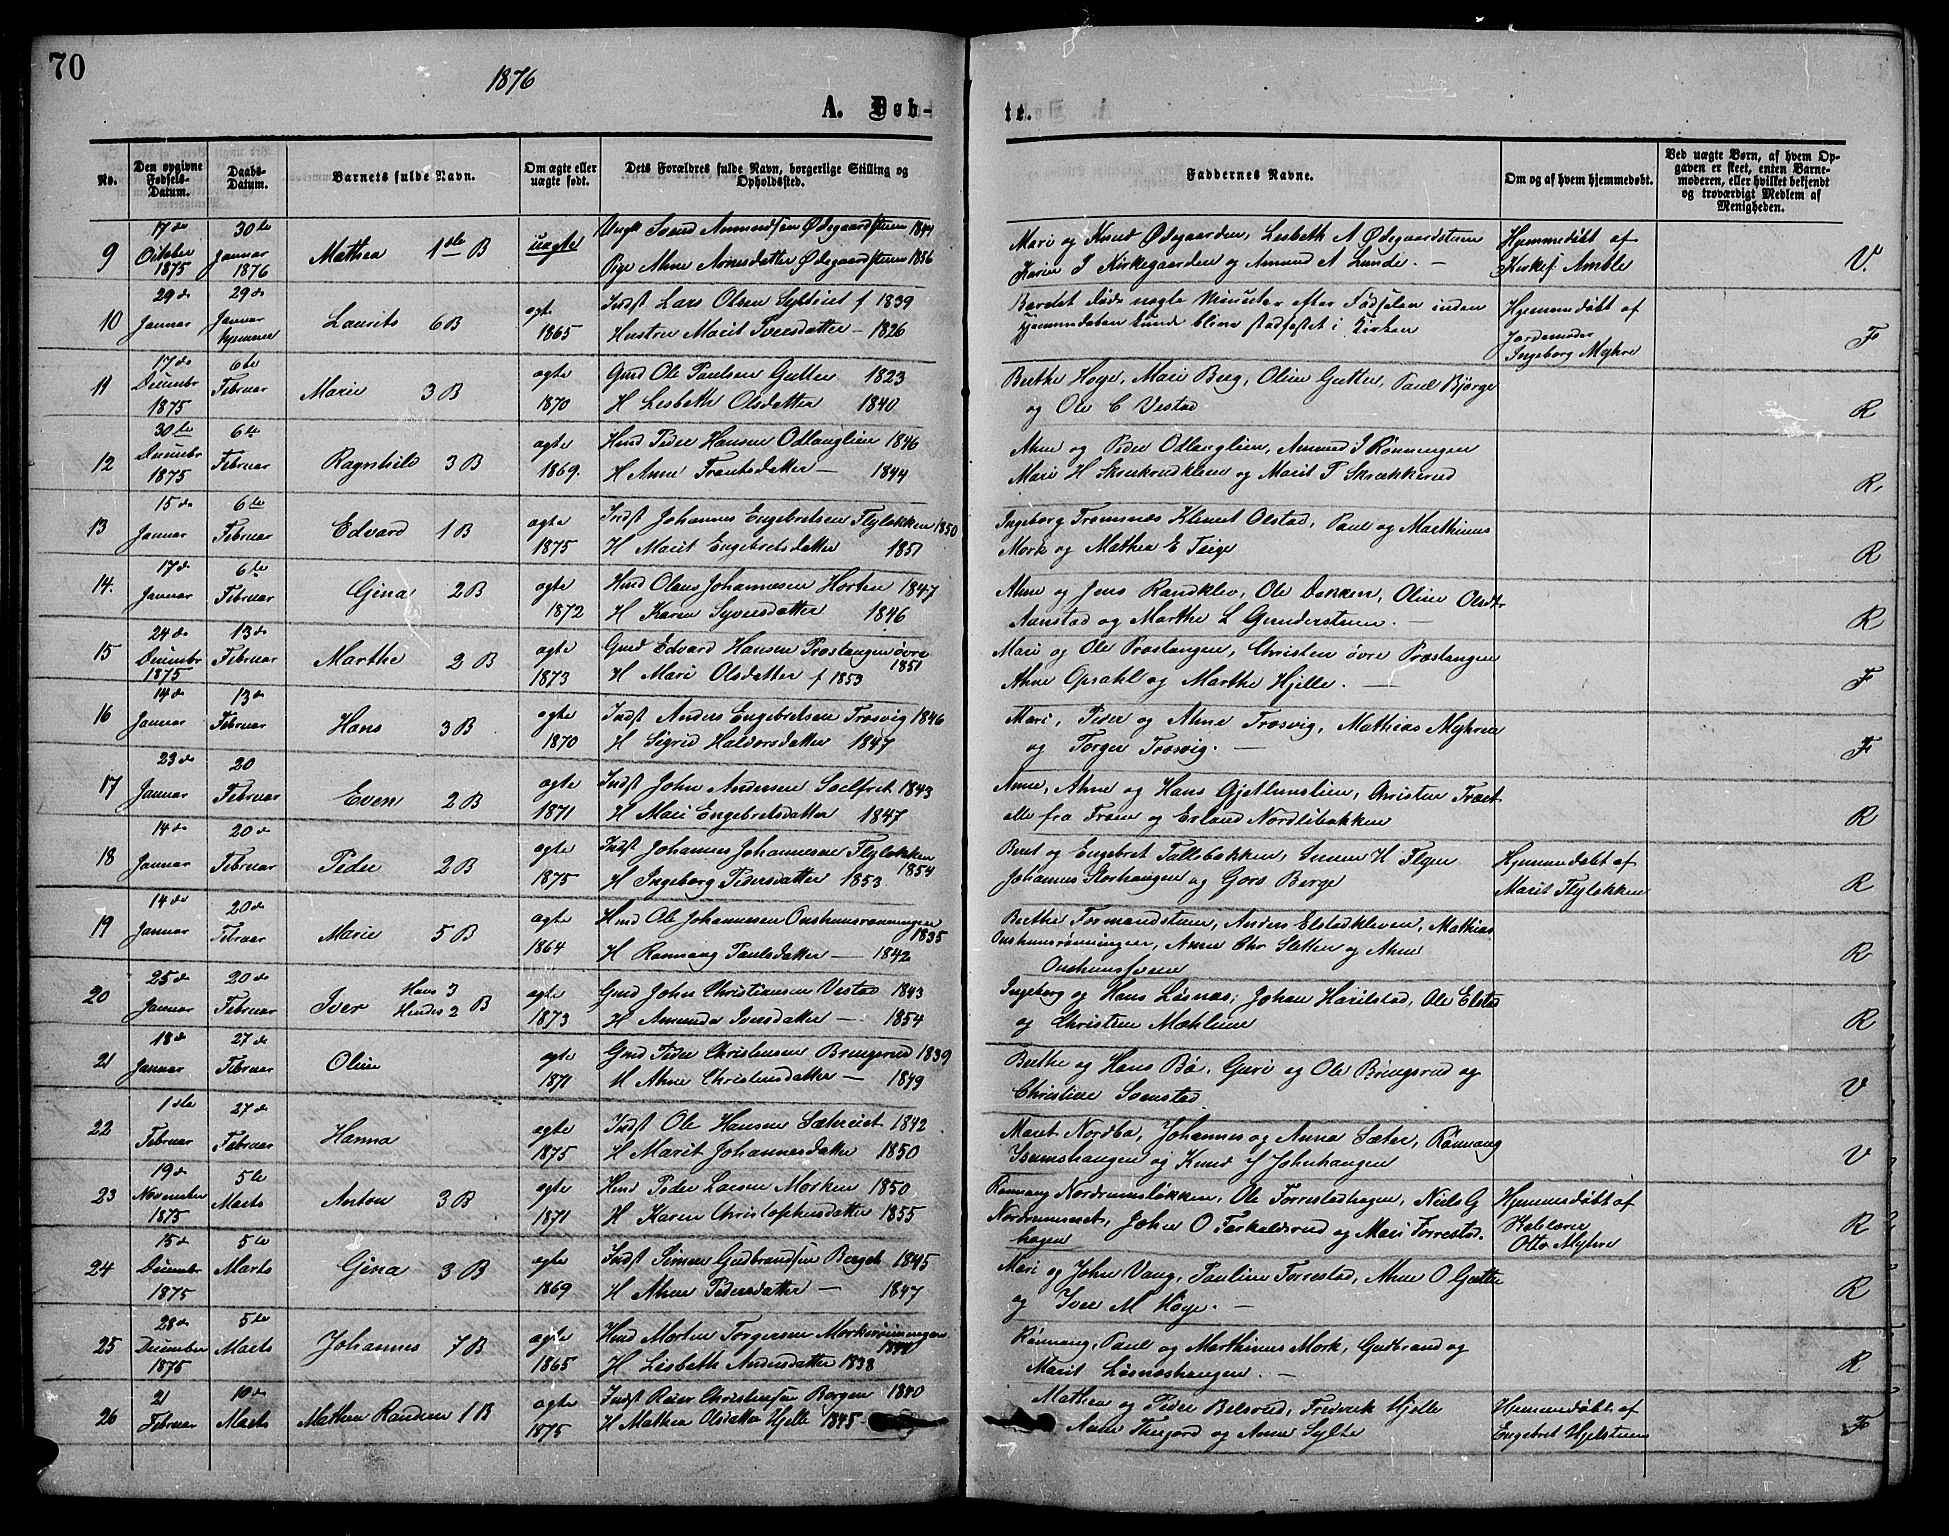 70
1876
A. Døb-
te.
No.
Den opgivne Fødsels-Datum.
Daabs-Datum.
Barnets fulde Navn.
Om ægte eller uægte født.
Dets Forældres fulde Navn, borgerlige Stilling og Opholdssted.
Faddernes Navne.
Om og af hvem hjemmedøbt.
Ved uægte Børn, af hvem Opgaven er skeet, enten Barnemoderen, eller hvilket bekjendt og troværdigt Medlem af Menigheden.
9 17de October 1875 30te Januar 1876 Mathea 1ste B uægte
Ungk Svend Amundsen Ødegaardstuen 1844
Pige Ahne Arnesdatter Ødegaardstuen 1856
Mari og Knud Ødegaarden, Lesbeth A Ødegaardstuen
Karen I Kirkegaarden og Amund A Lunde. —
Hjemmedøbt af
Kirkes. Amble
V.
10 29de Januar 29de Januar hjemme Laurits 6 B ægte 1865
Indst Lars Olsen f 1839
Hustru Marit Iversdatter — 1826
døde nogle Minuter efter Fødselen inden
hjemmedaaben kunde blive stadfæstet i Kirken
Hjemmedøbt af
Jordemoder
Ingeborg Myhre
F
11 17de Decembr 1875 6te Februar Marie 3 B ægte 1870
Gmd Ole Paulsen Gutter 1823
H Lisbeth Olsdatter 1840
Berthe Høye, Mari Berg, Oline Gutter, Paul Bjørge
og Ole C Vestad
R
12 30te Decembr 1875 6te Februar Ragnhild 3 B ægte 1869.
Hmd Peder Hansen Odlauglien 1846
H Anne Frantsdatter — 1844
Ahne og Peder Odlauglien, Amund I Rønningen
Mari H Skrukrudklein og Marit P Skrækkerud
R.
13 15de Januar 6te Februar Edvard 1 B ægte 1875
Indst Johannes Engebretsen Flyløkken 1850
H Marit Engebretsdatter 1851
Ingeborg Tromsnæs Klemet Olstad, Paul og Marthinus
Mork og Mathea E Teige
R
14. 17de Januar 6te Februar Gina 2 B ægte 1872
Hmd Olaus Johannesen Horten 1847
H Karen Syversdatter 1846
Ahne og Jens Randklev, Ole Dekken, Oline Olsdtr
Aanstad og Marthe L Gunderstuen. —
R
15 24de Decembr 1875 13de Februar Marthe 2 B ægte 1873
Gmd Edvard Hansen Præstangen øvre 1851
H Mari Olsdatter f 1853
Mari og Ole Præstangen, Christen øvre Præstangen
Ahne Opsahl og Marthe Hjelle. —
F
16 14de Januar 13de Februar Hans 3 B ægte 1870
Indst Anders Engebretsen Trosvig 1846
H Sigrid Haldorsdatter 1847
Mari, Peder og Ahne Trosvig, Mathias Myhren
og Torger Trosvig. —
F
17 23de Januar 20 Februar Even 2 B ægte 1871
Indst John Andersen Soelfret 1843
H Mari Engebretsdatter 1847
Anne, Ahne og Hans Gjetlumslien, Christen Træet
alle fra Froen og Erland Nordlibakken
R
18 14de Januar 20de Februar Peder 2 B ægte 1875
Indst Johannes Johannesen Flyløkken 1854
H Ingeborg Pedersdatter 1853
Berit og Engebret Tallebakken, Simen H Flyen
Johannes Storhaugen og Goro Berge
Hjemmedøbt af
Marit Flyløkken
R
19 14de Januar 20de Februar Marie 5 B ægte 1864
Hmd Ole Johannesen Onshusrønningen 1835
H Rønnaug Paulsdatter — 1842
Berthe Formandstuen, Anders Elstadkleven, Mathias
Onshusrønningen, Anne Chr Sletten og Ahne
Onshussveen
R
20 25de Januar 20de Februar Iver Hans 3 Hendes 2 B ægte 1873
Gmd John Christiansen Vestad 1843
H Amunda Iversdatter — 1854
Ingeborg og Hans Løsnæs, Johan Harilstad, Ole Elstad
og Christine Mæhlum
R
21 18de Januar 27de Februar Oline ægte 1871
Gmd Peder Christensen Bringsrud 1839
H Ahne Christensdatter — 1849
Berthe og Hans Bø, Guri og Ole Bringsrud og
Christine Svenstad
V
22 1ste Februar 27de Februar Hanna ægte 1875
Indst Ole Hansen Sætereiet 1842
H Marit Johannesdatter 1850
Marit Nordbø, Johannes og Anna Sæter, Rønnaug
Isumshaugen og Knud Johnhaugen
V
23 19de November 1875 5te Marts Anton 3 B ægte 1871
Hmd Peder Larsen Morken 1850
H Karen Christophersdatter 1855
Rønnaug Nordrumsløkken, Ole Forrestadhagen, Niels G
Nordrumseiet, Johan O Torkelsrud og Mari Forrestad.
hagen
Hjemmedøbt af
Otto Myhre
R
24 15de Decembr 1875 5te Marts Gina 3 B ægte 1869
Indst Simen Gudbrandsen Berget 1845
H Ahne Pedersdatter — 1847
Mari og John Vang, Pauline Forrestad, Ahne O Gutter
og Iver M Høye. —
R
25 28de December 1875 5te Marts Johannes 7 B ægte 1865
Hmd Morten Torgersen Morkerønningen 1840
H Lisbeth Andersdatter 1838
Rønnaug, Paul og Marthinus Mork, Gudbrand og
Marit Løsnæshaugen. —
R
26 21 Februar 10de Marts Mathea Randine 1 B ægte 1875
Indst Reier Christensen Borgen 1840
H Mathea Olsdatter Hjelle 1845
Mathea og Peder Belsrud, Fredrik Hjelle
Anne og Anne Sylte
Hjemmedøbt af
Engebret Hjelstuen
F